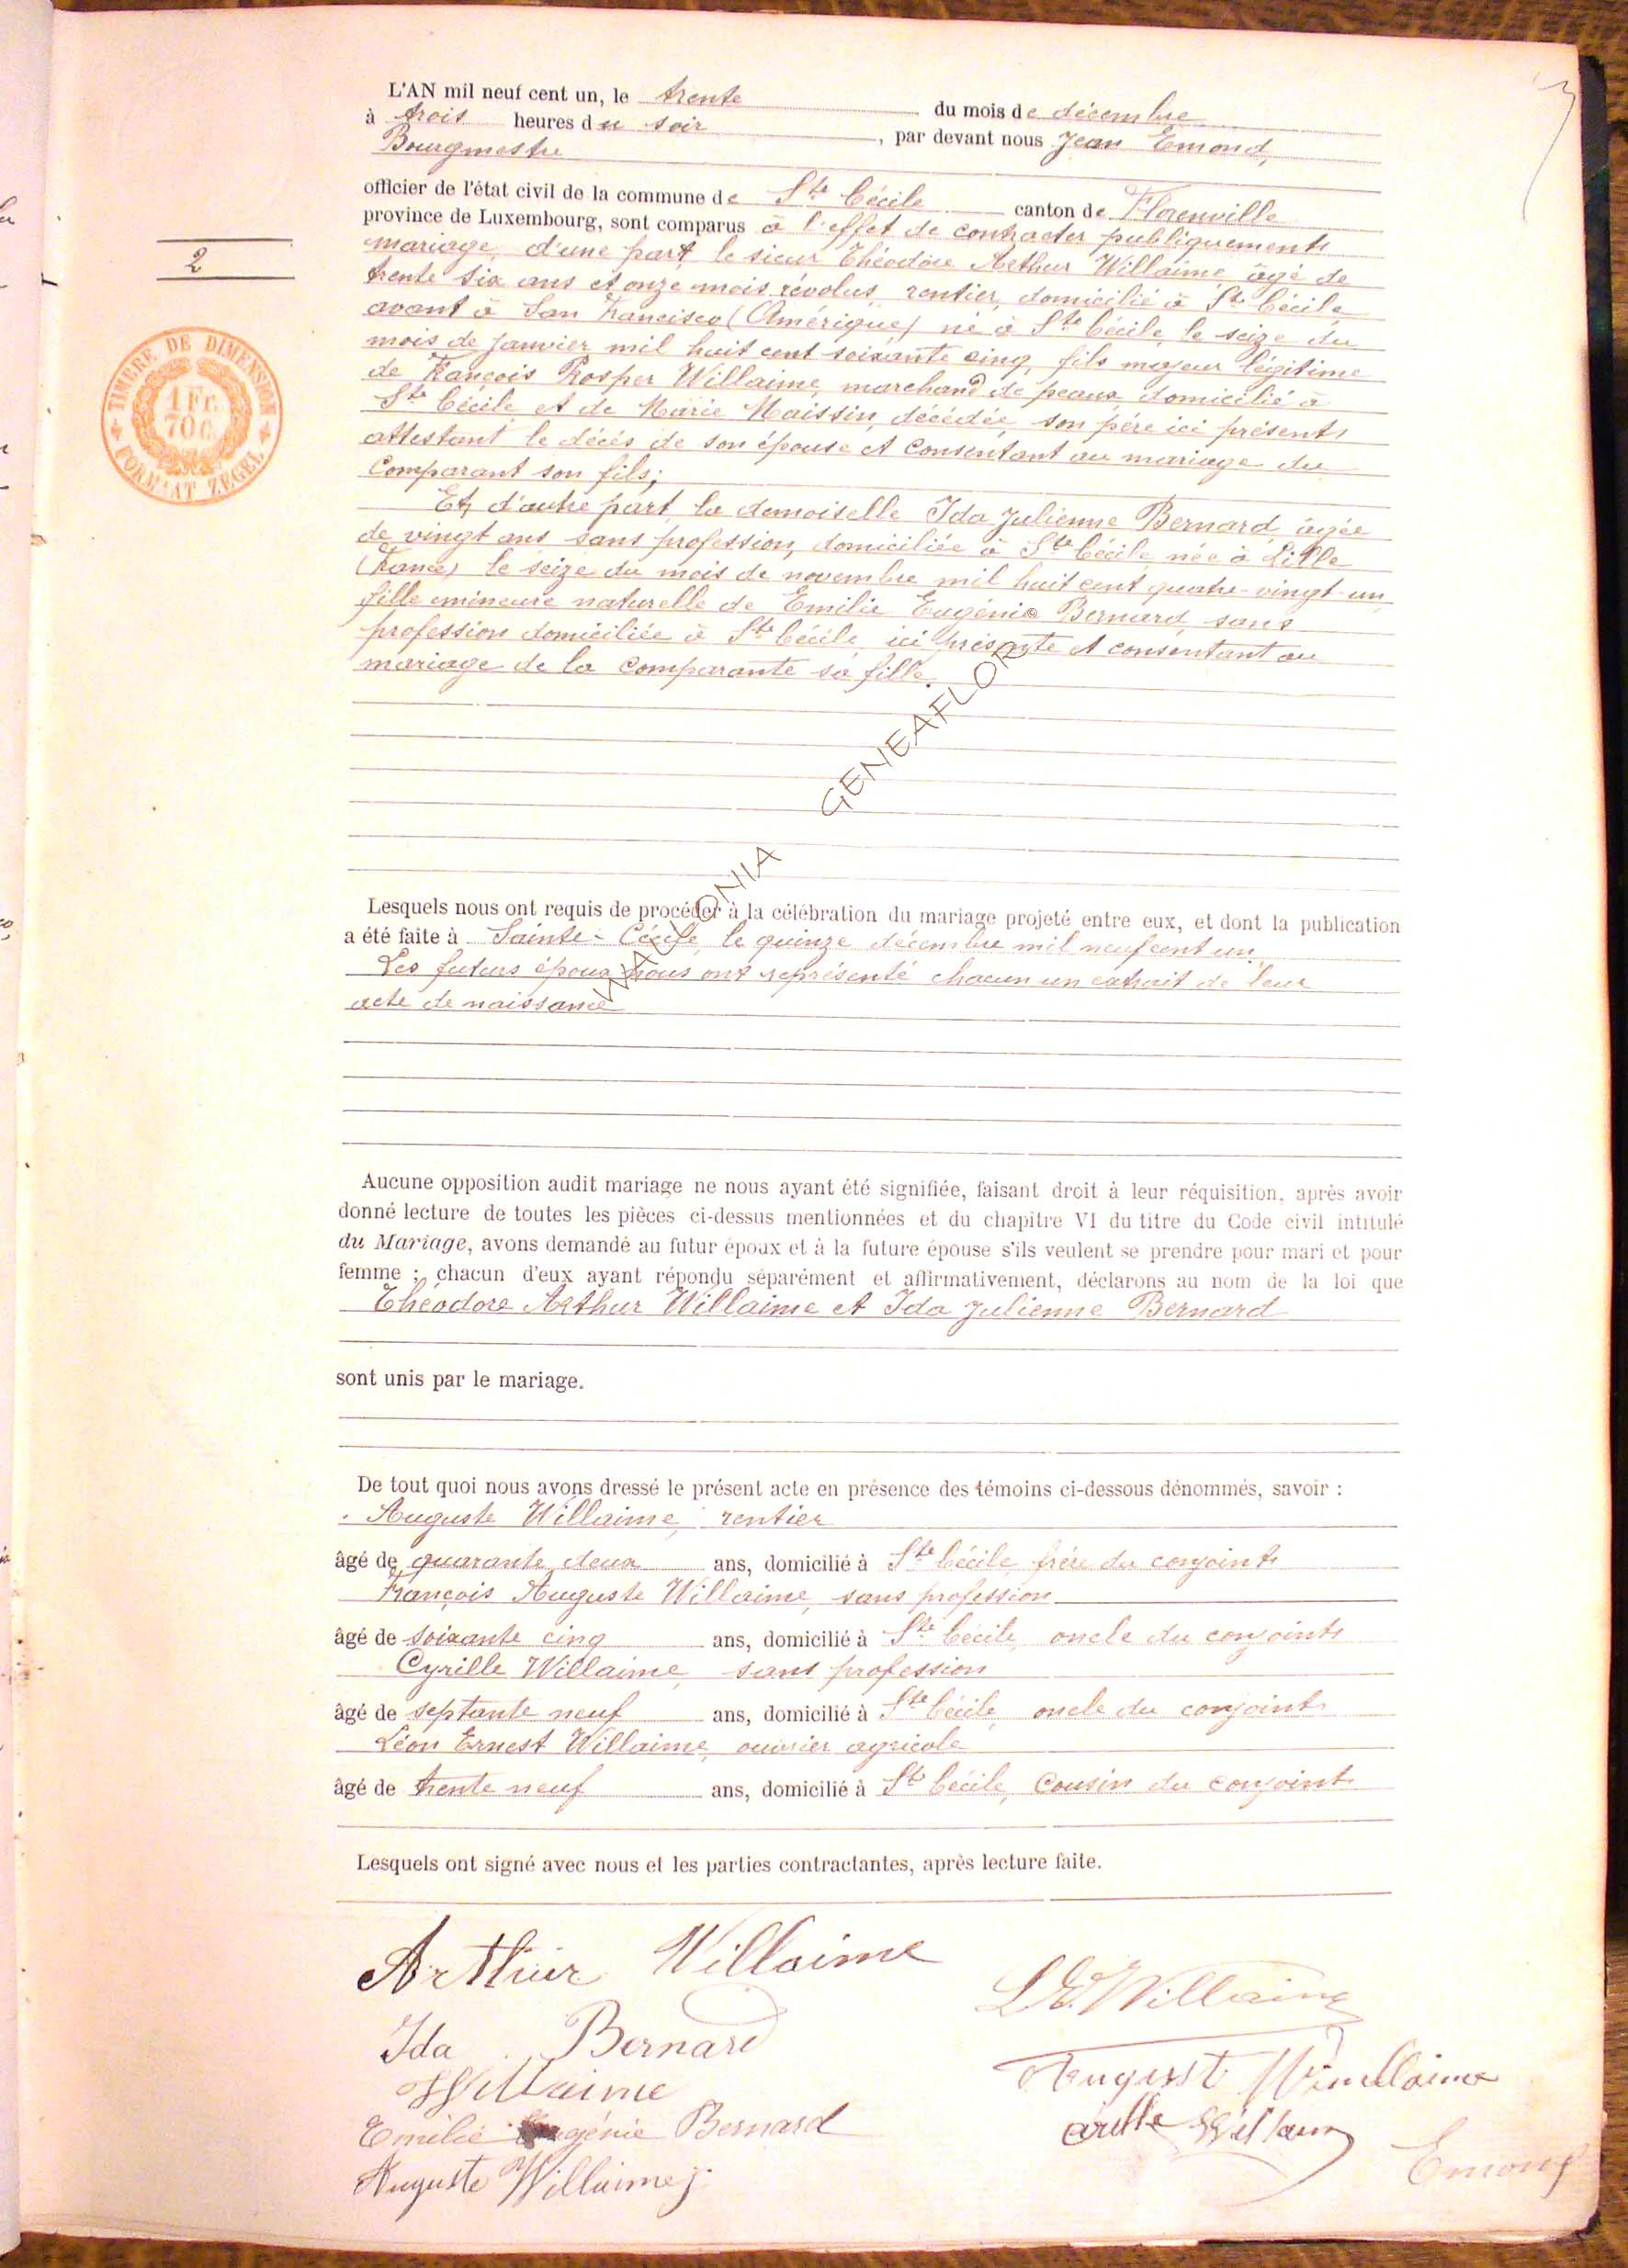 L'AN mil neuf cent un, le trente du mois de décembre
à trois heures du soir, par devant nous Jean Emond,
Bourgmestre
officier de l'état civil de la commune de Ste Cécile canton de Florenville
province de Luxembourg, sont comparus à l'effet de contracter publiquement
mariage, d'une part, le sieur Théodore Arthur Willaime, âgé de
trente six ans et onze mois révolus, rentier, domicilié à Ste Cécile,
avant à San Francisco (Amérique) né à Ste Cécile, le seize du
mois de janvier mil huit cent soixante cinq, fils majeur légitime
de François Prosper Willaime, marchand de peaux domicilié à
Ste Cécile, et de Marie Maissin, décédée, son père ici présent
attestant le décès de son épouse et consentant au mariage du
Comparant son fils;
Et, d'autre part, la demoiselle Ida Julienne Bernard, âgée
de vingt ans sans profession, domiciliée à Ste Cécile, née à Lille
(France) le seize du mois de novembre mil huit cent quatre-vingt-un,
fille mineure naturelle de Emilie Eugénie Bernard, sans
profession domiciliée à Ste Cécile, ici présente et consentant au
mariage de la comparante sa fille.
2
TIMBRE DE DIMENSION
1 Fr.
70 c.
FORMAAT ZEGEL
WALLONIA GENEAFLOR
Lesquels nous ont requis de procéder à la célébration du mariage projeté entre eux, et dont la publication
a été faite à Sainte-Cécile, le quinze décembre mil neuf cent un.
Les futurs époux nous ont représenté chacun un extrait de leur
acte de naissance
Aucune opposition audit mariage ne nous ayant été signifiée, faisant droit à leur réquisition, après avoir
donné lecture de toutes les pièces ci-dessus mentionnées et du chapitre VI du titre du Code civil intitulé
du Mariage, avons demandé au futur époux et à la future épouse s'ils veulent se prendre pour mari et pour
femme ; chacun d'eux ayant répondu séparément et affirmativement, déclarons au nom de la loi que
Théodore Arthur Willaime et Ida Julienne Bernard
sont unis par le mariage.
De tout quoi nous avons dressé le présent acte en présence des témoins ci-dessous dénommés, savoir :
Auguste Willaime, rentier
âgé de quarante deux ans, domicilié à Ste Cécile, frère du conjoint
François Auguste Willaime, sans profession
âgé de soixante cinq ans, domicilié à Ste Cécile, oncle du conjoint
Cyrille Willaime, sans profession
âgé de septante neuf ans, domicilié à Ste Cécile, oncle du conjoint
Léon Ernest Willaime, ouvrier agricole
âgé de trente neuf ans, domicilié à Ste Cécile, Cousin du conjoint
Lesquels ont signé avec nous et les parties contractantes, après lecture faite.
Arthur Willaime
L E. Willaime
Ida Bernard
Willaime
Emilie Eugénie Bernard
Auguste Willaime j.
Emond